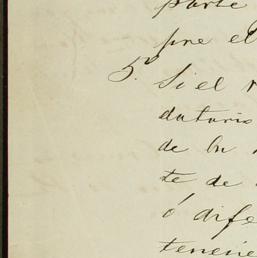 parte
pre el
5º Si el
datario
de bu
te de
ó dife
tenere